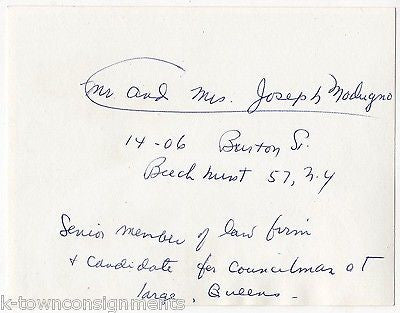 Mr and Mrs. Joseph Modugno
14-06 Burton St.
Beechhurst 57, N.Y
Senior member of law firm
+ candidate for councilman at
large, Queens.
k-townconsignments